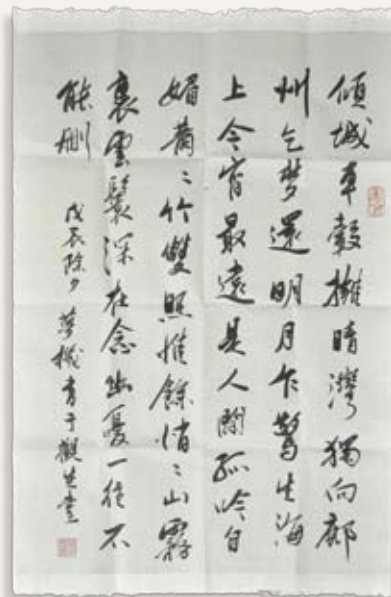 傾城車轂擁晴灣獨向鄜
州乞梦還明月乍驚生海
上今宵最遠是人間孤吟自
媚蕭〻竹雙照惟餘悄〻山霧
裏雲鬟深在念幽憂一往不
能刪
戊辰除夕夢機書于